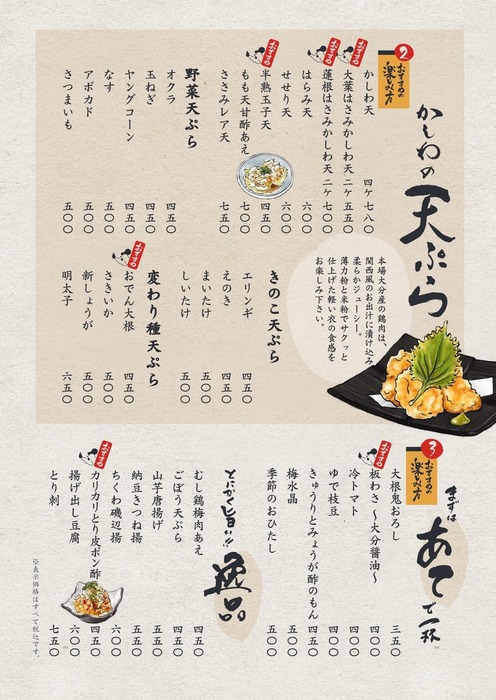 おすすめの楽しみ方
2
かしわの天ぷら
本場大分産の鶏肉は、
関西風のお出汁に漬け込み
柔らかジューシー。
薄力粉と米粉でサクッと
仕上げた軽い衣の食感を
お楽しみ下さい。
かしわ天 四ケ 七八〇
おすすめ
大葉はさみかしわ天 二ケ 五五〇
おすすめ
蓮根はさみかしわ天 二ケ 七〇〇
はらみ天 六〇〇
せせり天 六〇〇
おすすめ
半熟玉子天 四五〇
もも天甘酢あえ 七五〇
ささみレア天 七五〇
野菜天ぷら
オクラ 四五〇
玉ねぎ 四五〇
ヤングコーン 四五〇
なす 五〇〇
アボカド 五〇〇
さつまいも 五〇〇
きのこ天ぷら
エリンギ 四五〇
えのき 五〇〇
まいたけ 五〇〇
しいたけ 五〇〇
変わり種天ぷら
おすすめ
おでん大根 四五〇
さきいか 五〇〇
新しょうが 五〇〇
明太子 六五〇
おすすめの楽しみ方
3
まずはあてで一杯
大根鬼おろし 三五〇
おすすめ
板わさ ～大分醤油～ 四五〇
冷トマト 四五〇
ゆで枝豆 四五〇
きゅうりとみょうが酢のもん 四五〇
梅水晶 五〇〇
季節のおひたし 五〇〇
とにかく旨い!!逸品
むし鶏梅肉あえ 四五〇
ごぼう天ぷら 四五〇
山芋唐揚げ 四五〇
納豆きつね揚 五〇〇
ちくわ磯辺揚 六〇〇
おすすめ
カリカリとり皮ポン酢 四五〇
揚げ出し豆腐 六〇〇
とり刺 七五〇
※表示価格はすべて税込です。